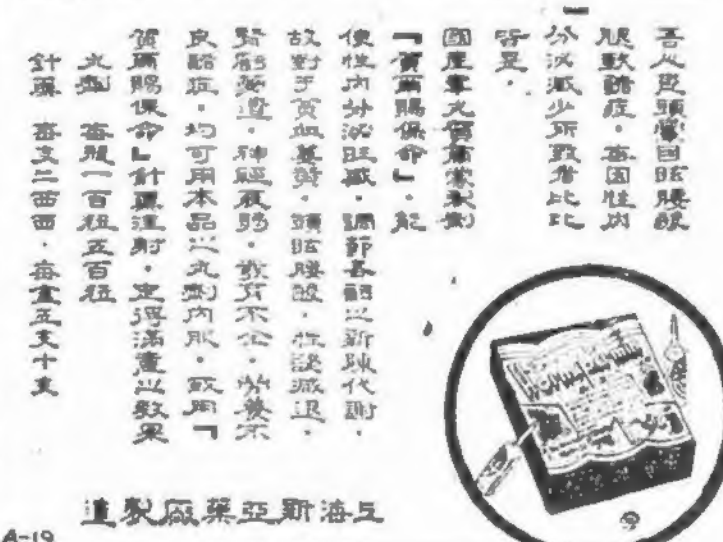 吾人患頭暈目眩腰酸
腿軟諸症・每因性內
分泌減少所致者比比
皆是・
國產睾丸荷爾蒙製劑
「賀爾賜保命」・能
使性內分泌旺盛・調節各器之新陳代謝・
故對于貧血萎黃・頭眩腰酸・性慾減退・
腎虧・神經衰弱・發育不全・營養不
良諸症・均可用本品之丸劑內服・或用「
賀爾賜保命」針藥注射・定得滿意之效果
丸劑 每瓶一百粒五百粒
針藥 每支二西西・每盒五支十支
上海新亞藥廠製造
A-19